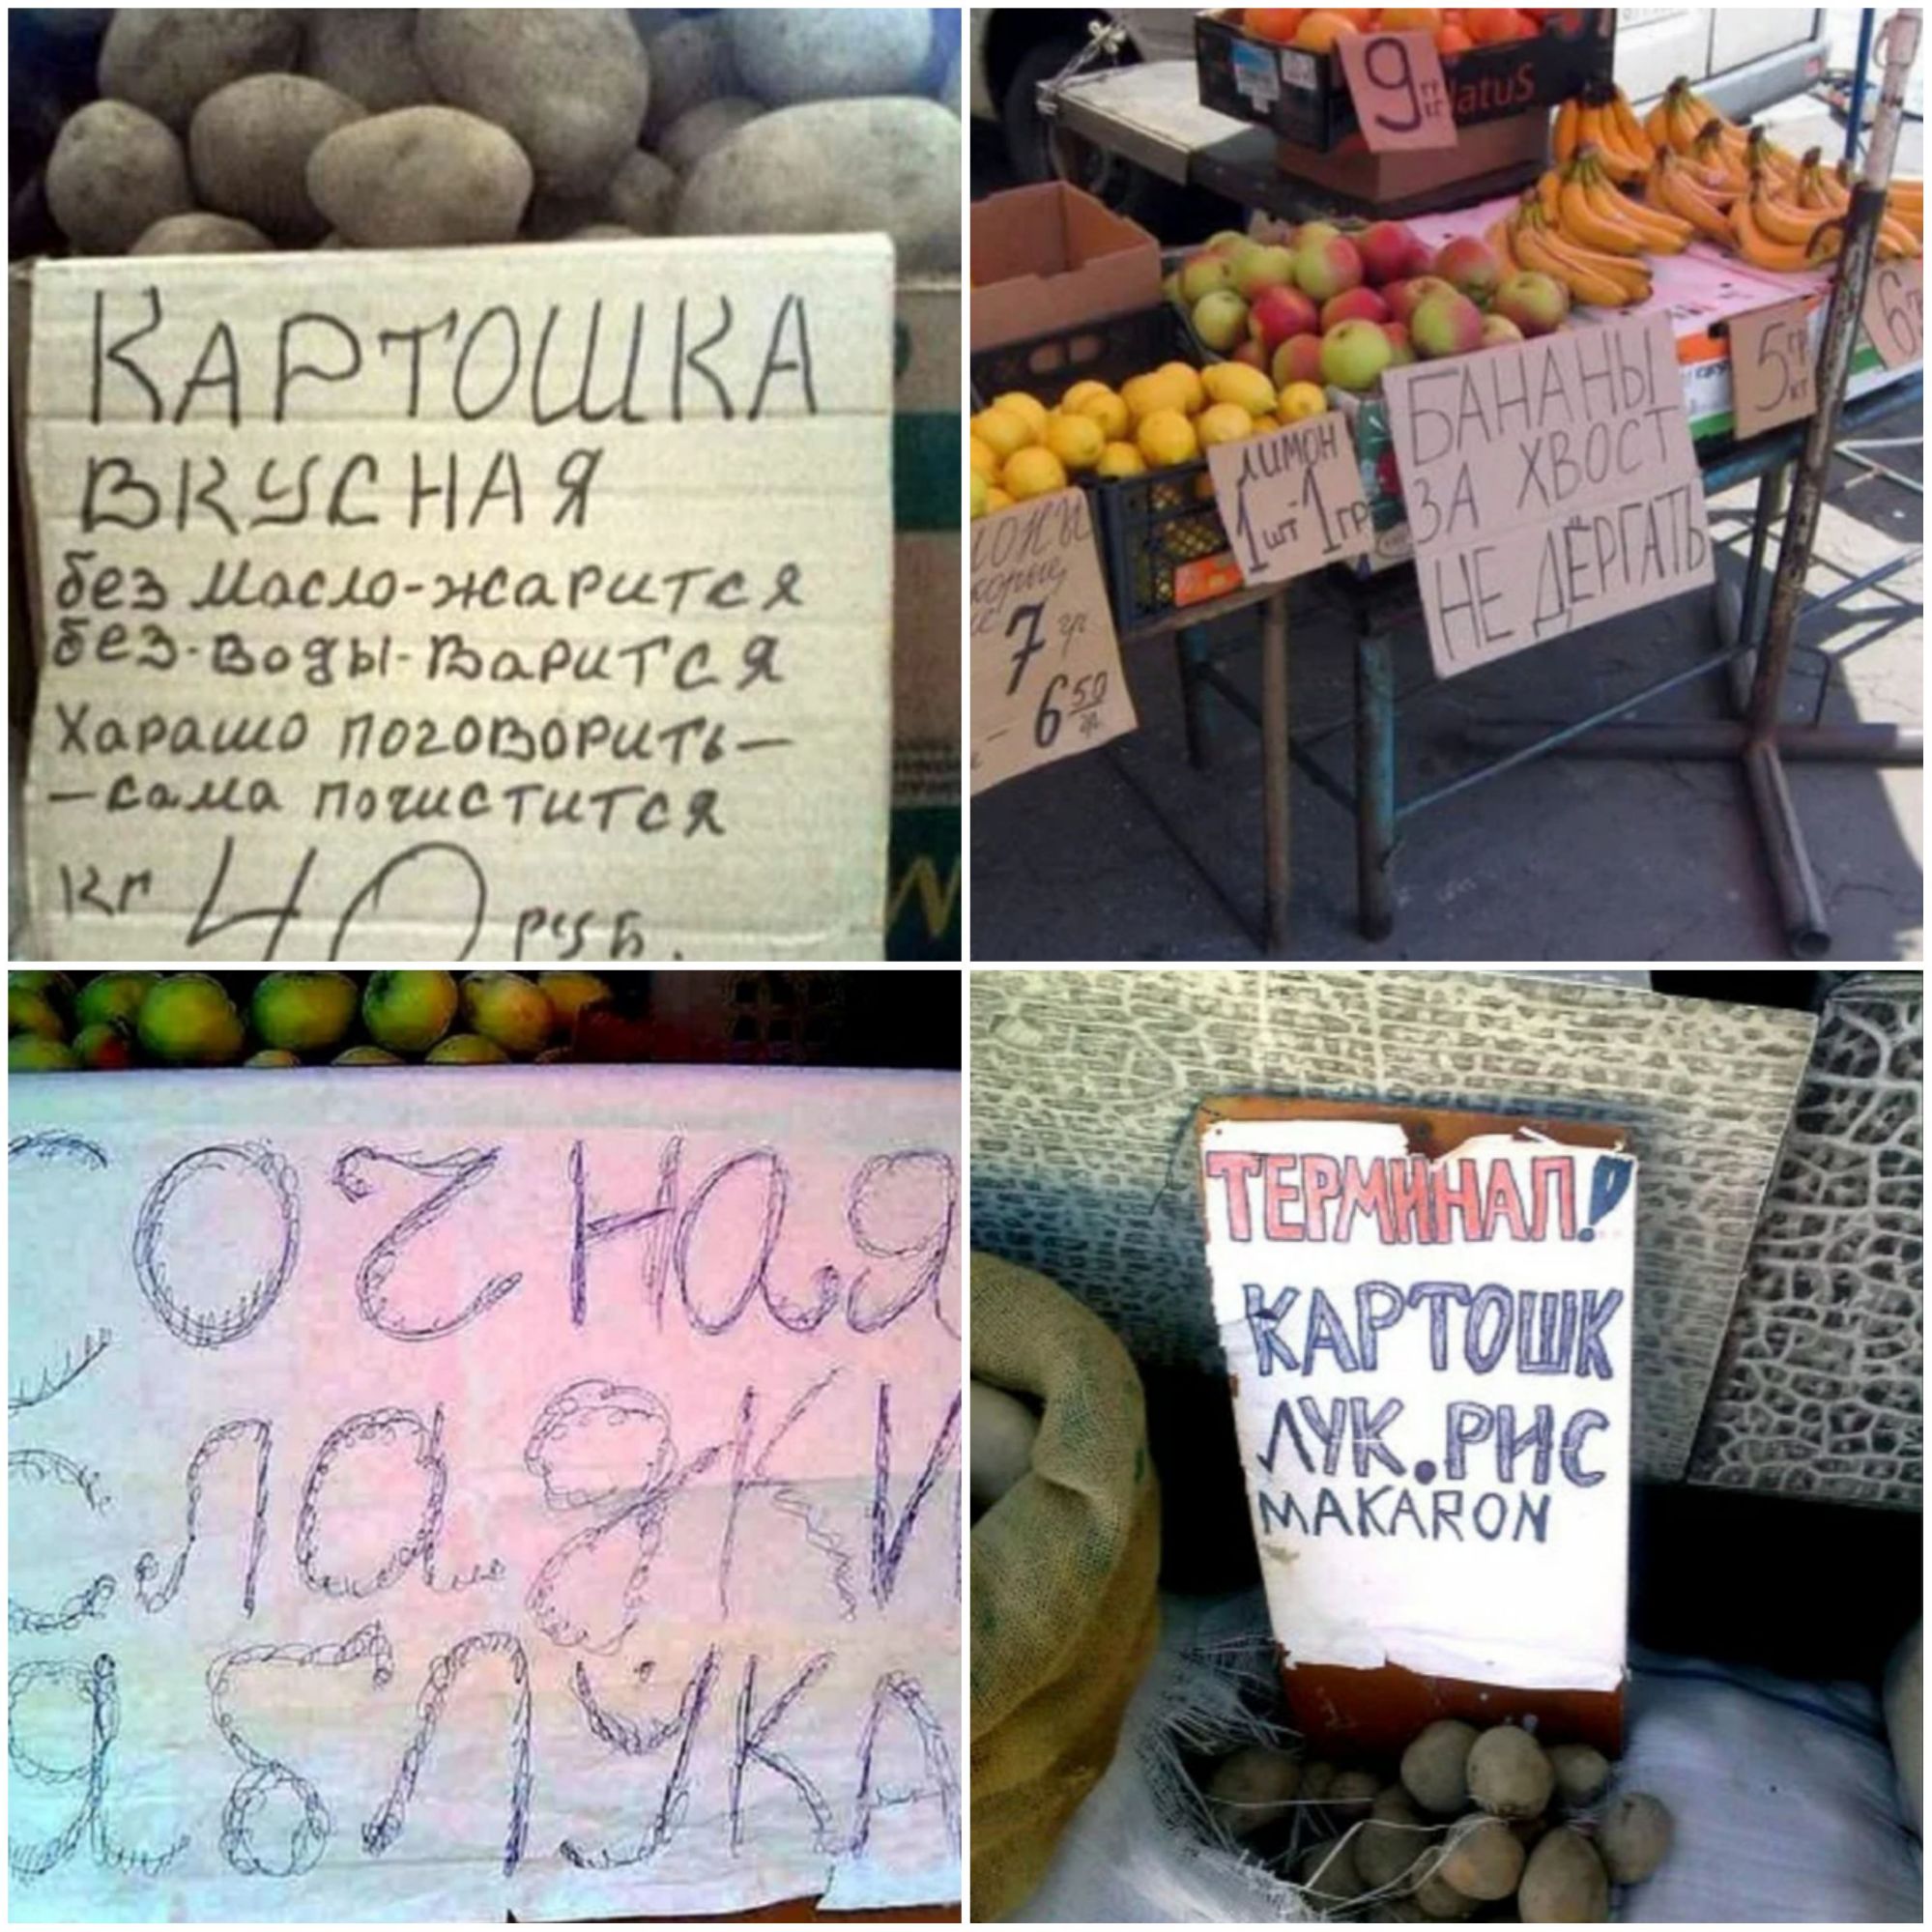 КАРТОШКА
ВКУСНАЯ
без масло-жарится
без-воды-варится
Харашо поговорить-
-сама почистится
кг 40 руб.
9 гр кг
БАНАНЫ
ЗА ХВОСТ
НЕ ДЁРГАТЬ
5 гр кг
6
ЛИМОН
1шт-1гр
7 гр
6 50 гр
СОЧНАЯ
СЛАДКИ
ЯБЛУКА
ТЕРМИНАЛ!
КАРТОШК
ЛУК.РИС
MAKARON